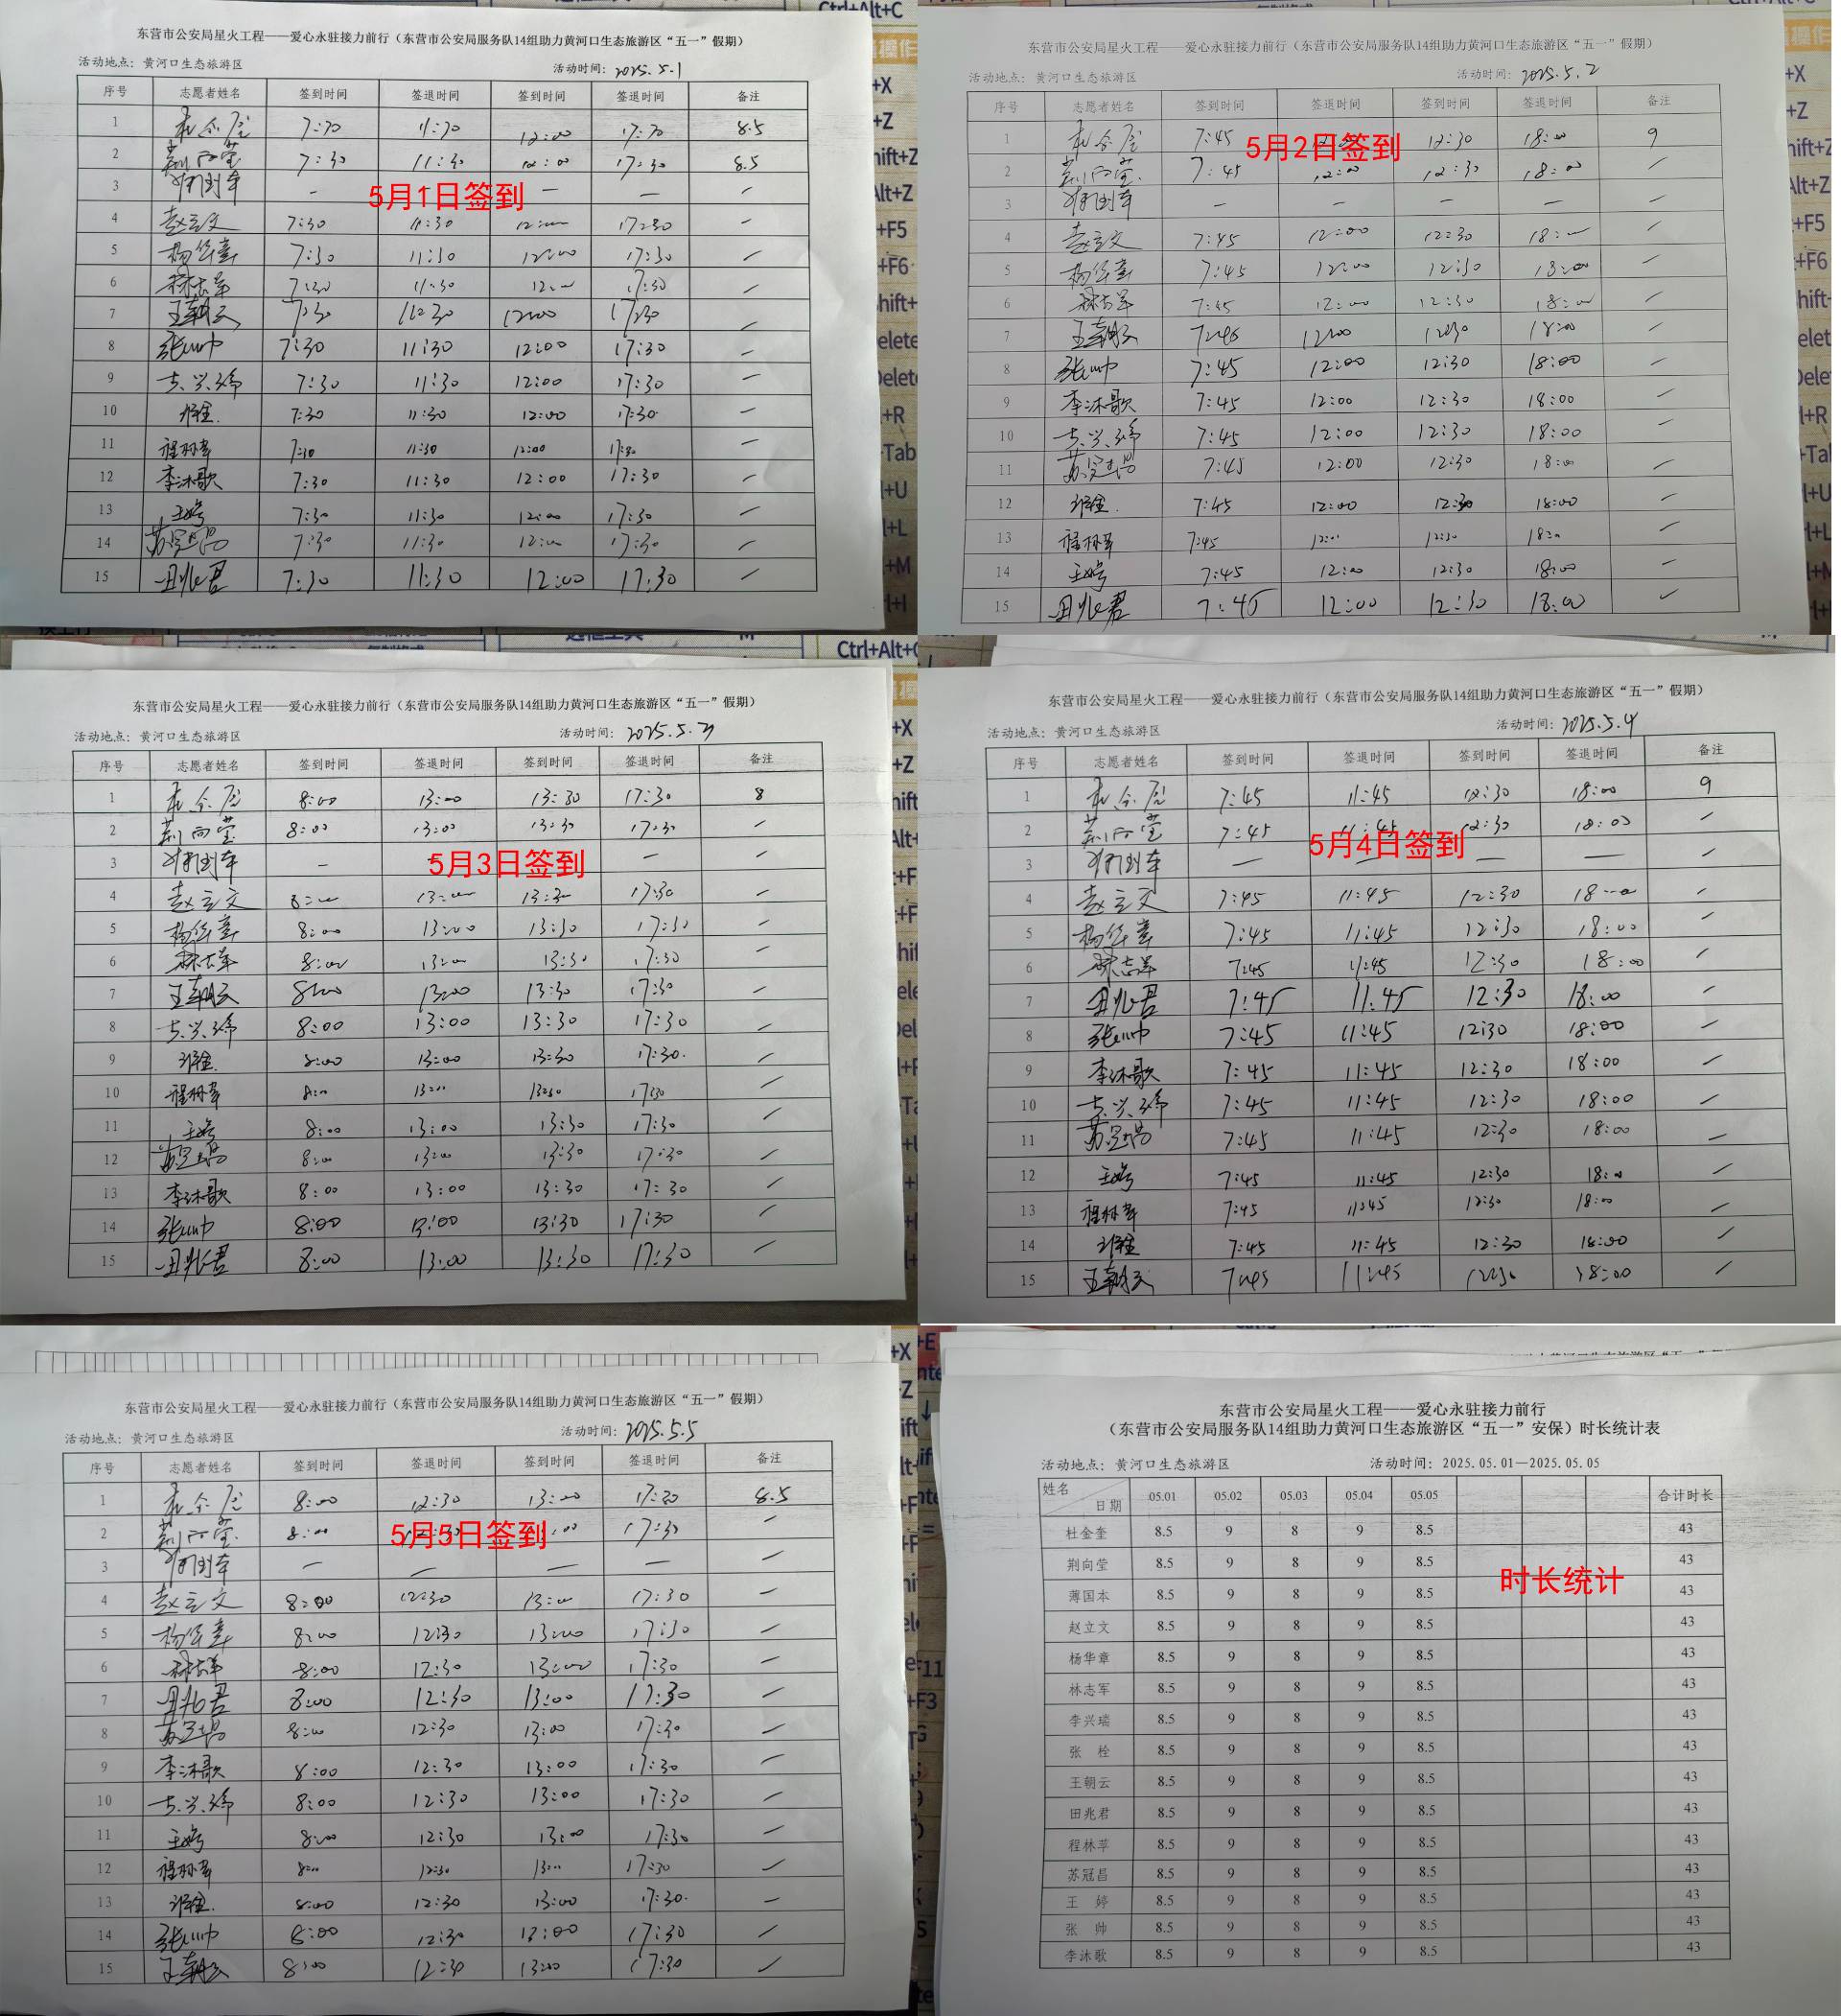 东营市公安局星火工程——爱心永驻接力前行（东营市公安局服务队14组助力黄河口生态旅游区“五一”假期）
活动地点：黄河口生态旅游区 活动时间：2025.5.1
序号 志愿者姓名 签到时间 签退时间 签到时间 签退时间 备注
1 杜金奎 7:30 11:30 12:00 17:30 8.5
2 荆向莹 7:30 11:30 12:00 17:30 8.5
3 — — —
5月1日签到
4 赵立文 7:30 11:30 12:00 17:30
5 杨华章 7:30 11:30 12:00 17:30
6 林志军 7:30 11:30 12:00 17:30
7 王朝云 7:30 11:30 12:00 17:30
8 张帅 7:30 11:30 12:00 17:30
9 李兴瑞 7:30 11:30 12:00 17:30
10 张栓 7:30 11:30 12:00 17:30
11 程林苹 7:30 11:30 12:00 17:30
12 李沐歌 7:30 11:30 12:00 17:30
13 王婷 7:30 11:30 12:00 17:30
14 苏冠昌 7:30 11:30 12:00 17:30
15 田兆君 7:30 11:30 12:00 17:30
东营市公安局星火工程——爱心永驻接力前行（东营市公安局服务队14组助力黄河口生态旅游区“五一”假期）
活动地点：黄河口生态旅游区 活动时间：2025.5.2
序号 志愿者姓名 签到时间 签退时间 签到时间 签退时间 备注
1 杜金奎 7:45 12:30 18:00 9
5月2日签到
2 荆向莹 7:45 12:00 12:30 18:00
3 — — — —
4 赵立文 7:45 12:00 12:30 18:00
5 杨华章 7:45 12:00 12:30 18:00
6 林志军 7:45 12:00 12:30 18:00
7 王朝云 7:45 12:00 12:30 18:00
8 张帅 7:45 12:00 12:30 18:00
9 李沐歌 7:45 12:00 12:30 18:00
10 李兴瑞 7:45 12:00 12:30 18:00
11 苏冠昌 7:45 12:00 12:30 18:00
12 张栓 7:45 12:00 12:30 18:00
13 程林苹 7:45 12:00 12:30 18:00
14 王婷 7:45 12:00 12:30 18:00
15 田兆君 7:45 12:00 12:30 18:00
东营市公安局星火工程——爱心永驻接力前行（东营市公安局服务队14组助力黄河口生态旅游区“五一”假期）
活动地点：黄河口生态旅游区 活动时间：2025.5.3
序号 志愿者姓名 签到时间 签退时间 签到时间 签退时间 备注
1 杜金奎 8:00 13:00 13:30 17:30 8
2 荆向莹 8:00 13:00 13:30 17:30
3 — —
5月3日签到
4 赵立文 8:00 13:00 13:30 17:30
5 杨华章 8:00 13:00 13:30 17:30
6 林志军 8:00 13:00 13:30 17:30
7 王朝云 8:00 13:00 13:30 17:30
8 李兴瑞 8:00 13:00 13:30 17:30
9 张栓 8:00 13:00 13:30 17:30
10 程林苹 8:00 13:00 13:30 17:30
11 王婷 8:00 13:00 13:30 17:30
12 苏冠昌 8:00 13:00 13:30 17:30
13 李沐歌 8:00 13:00 13:30 17:30
14 张帅 8:00 13:00 13:30 17:30
15 田兆君 8:00 13:00 13:30 17:30
东营市公安局星火工程——爱心永驻接力前行（东营市公安局服务队14组助力黄河口生态旅游区“五一”假期）
活动地点：黄河口生态旅游区 活动时间：2025.5.4
序号 志愿者姓名 签到时间 签退时间 签到时间 签退时间 备注
1 杜金奎 7:45 11:45 12:30 18:00 9
2 荆向莹 7:45 11:45 12:30 18:00
5月4日签到
3 — — — —
4 赵立文 7:45 11:45 12:30 18:00
5 杨华章 7:45 11:45 12:30 18:00
6 林志军 7:45 11:45 12:30 18:00
7 田兆君 7:45 11:45 12:30 18:00
8 张帅 7:45 11:45 12:30 18:00
9 李沐歌 7:45 11:45 12:30 18:00
10 李兴瑞 7:45 11:45 12:30 18:00
11 苏冠昌 7:45 11:45 12:30 18:00
12 王婷 7:45 11:45 12:30 18:00
13 程林苹 7:45 11:45 12:30 18:00
14 张栓 7:45 11:45 12:30 18:00
15 王朝云 7:45 11:45 12:30 18:00
东营市公安局星火工程——爱心永驻接力前行（东营市公安局服务队14组助力黄河口生态旅游区“五一”假期）
活动地点：黄河口生态旅游区 活动时间：2025.5.5
序号 志愿者姓名 签到时间 签退时间 签到时间 签退时间 备注
1 杜金奎 8:00 12:30 13:00 17:30 8.5
2 荆向莹 8:00 17:30
5月5日签到
3 — — — —
4 赵立文 8:00 12:30 13:00 17:30
5 杨华章 8:00 12:30 13:00 17:30
6 林志军 8:00 12:30 13:00 17:30
7 田兆君 8:00 12:30 13:00 17:30
8 苏冠昌 8:00 12:30 13:00 17:30
9 李沐歌 8:00 12:30 13:00 17:30
10 李兴瑞 8:00 12:30 13:00 17:30
11 王婷 8:00 12:30 13:00 17:30
12 程林苹 8:00 12:30 13:00 17:30
13 张栓 8:00 12:30 13:00 17:30
14 张帅 8:00 12:30 13:00 17:30
15 王朝云 8:00 12:30 13:00 17:30
东营市公安局星火工程——爱心永驻接力前行
（东营市公安局服务队14组助力黄河口生态旅游区“五一”安保）时长统计表
活动地点：黄河口生态旅游区 活动时间：2025.05.01—2025.05.05
姓名 日期 05.01 05.02 05.03 05.04 05.05 合计时长
杜金奎 8.5 9 8 9 8.5 43
荆向莹 8.5 9 8 9 8.5 43
时长统计
薄国本 8.5 9 8 9 8.5 43
赵立文 8.5 9 8 9 8.5 43
杨华章 8.5 9 8 9 8.5 43
林志军 8.5 9 8 9 8.5 43
李兴瑞 8.5 9 8 9 8.5 43
张 栓 8.5 9 8 9 8.5 43
王朝云 8.5 9 8 9 8.5 43
田兆君 8.5 9 8 9 8.5 43
程林苹 8.5 9 8 9 8.5 43
苏冠昌 8.5 9 8 9 8.5 43
王 婷 8.5 9 8 9 8.5 43
张 帅 8.5 9 8 9 8.5 43
李沐歌 8.5 9 8 9 8.5 43